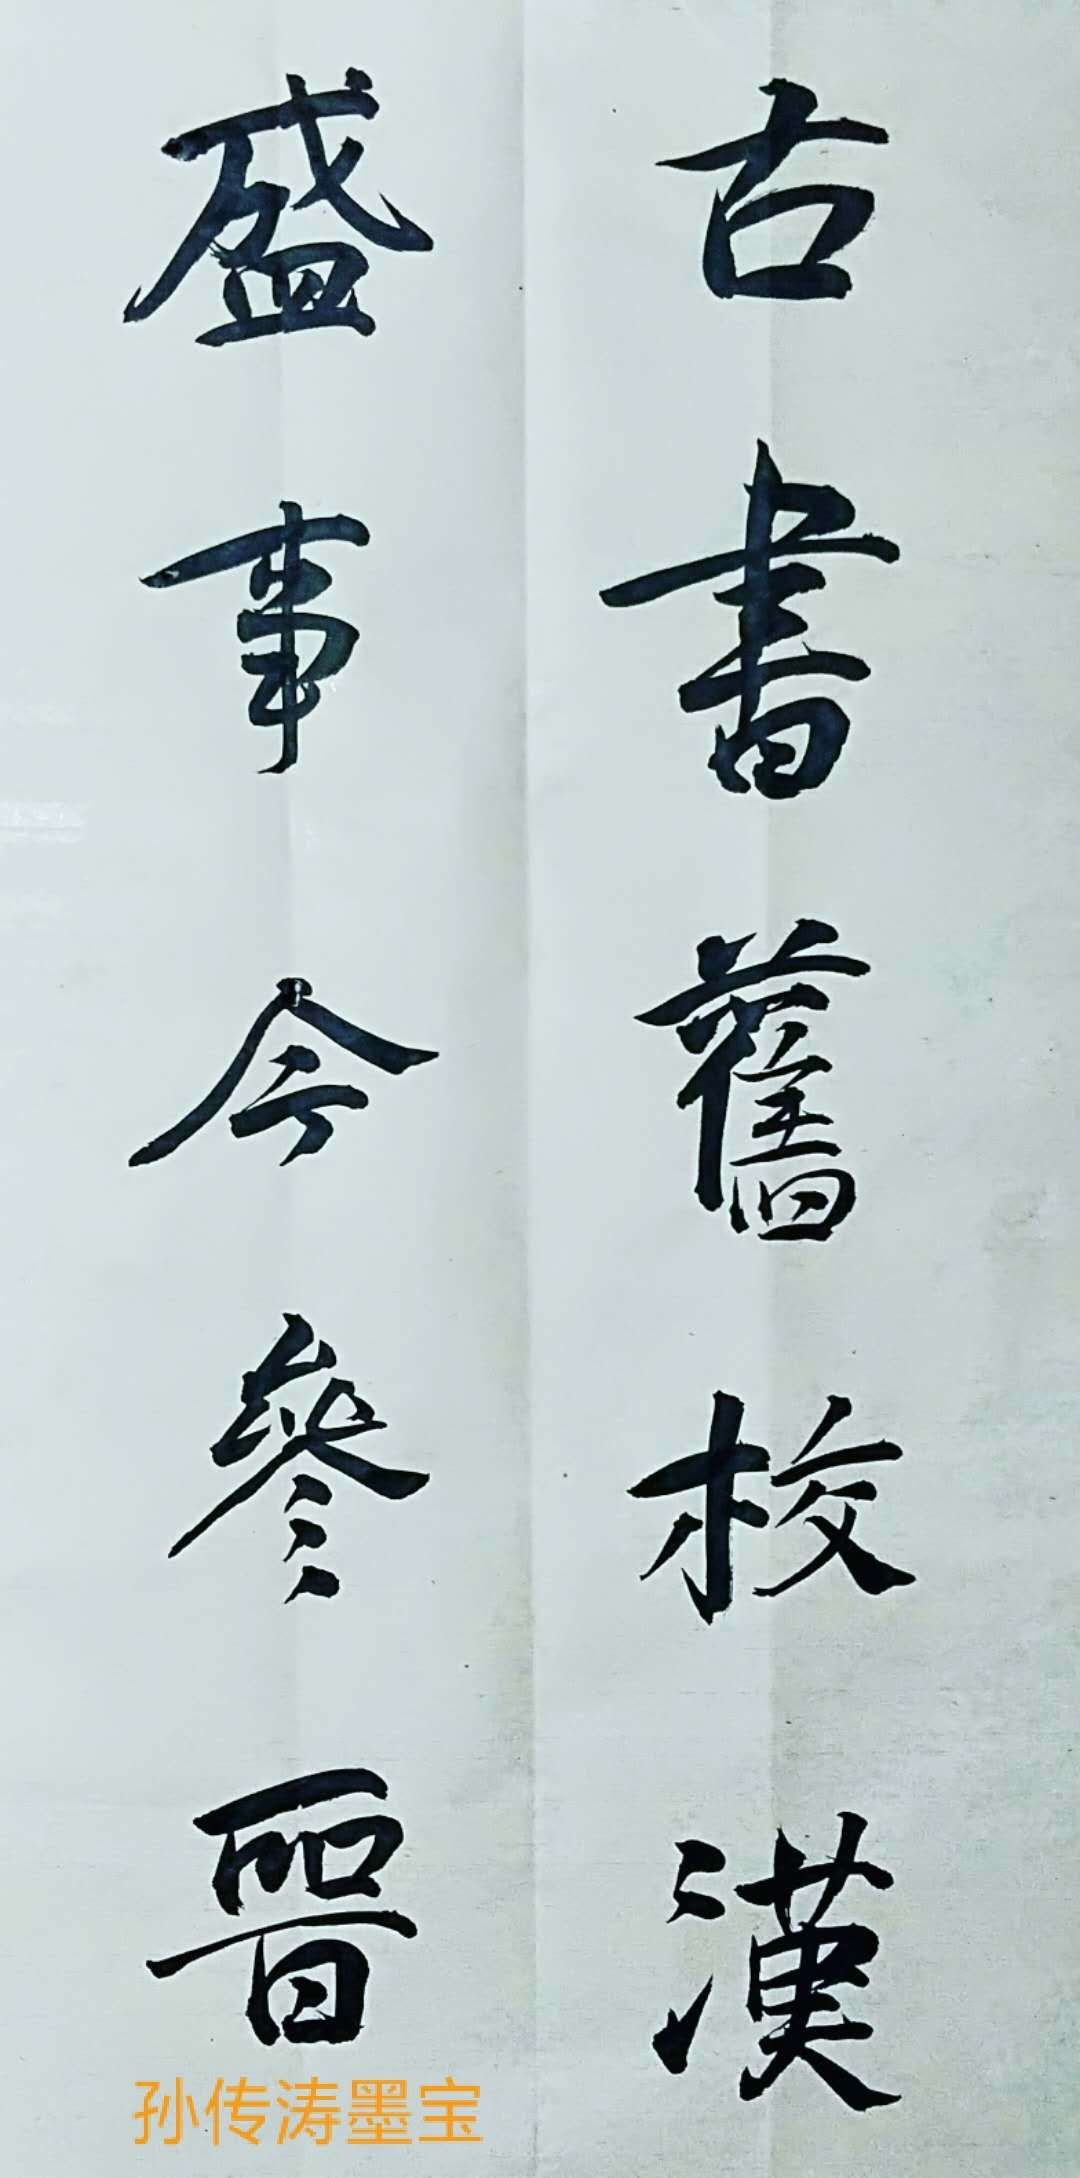 古書舊校漢
盛事今參晉
孙传涛墨宝